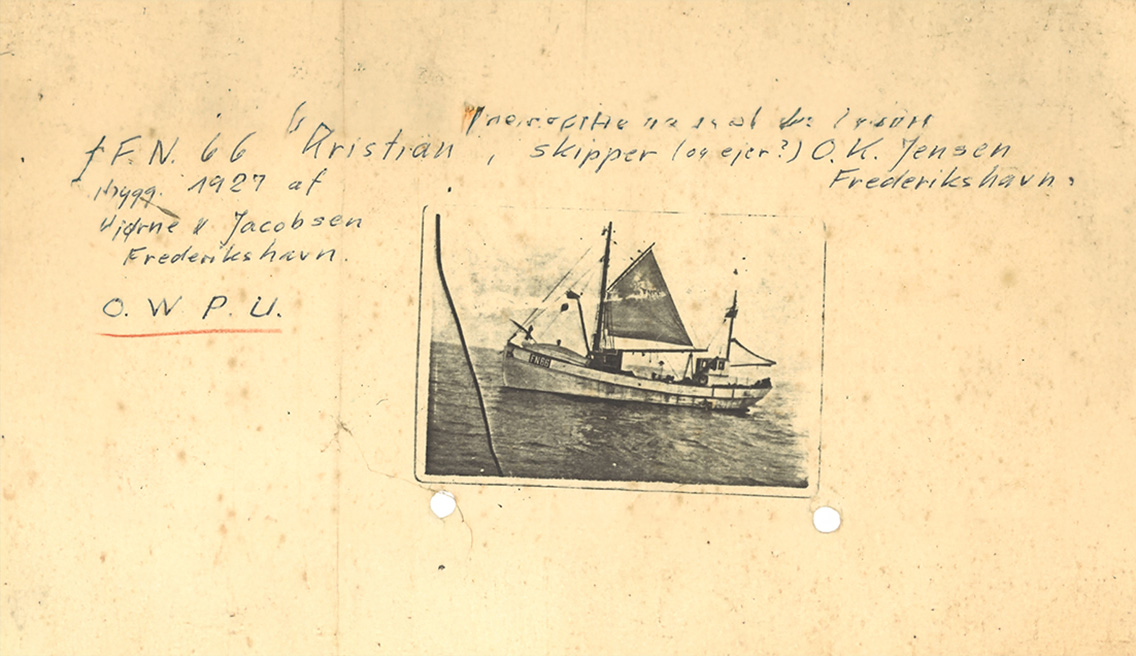 F.N. 66 "Kristian", skipper (og ejer?) O.K. Jensen
Frederikshavn.
bygg. 1927 af
Hjørne & Jacobsen
Frederikshavn.
O. W P. U.
FN66